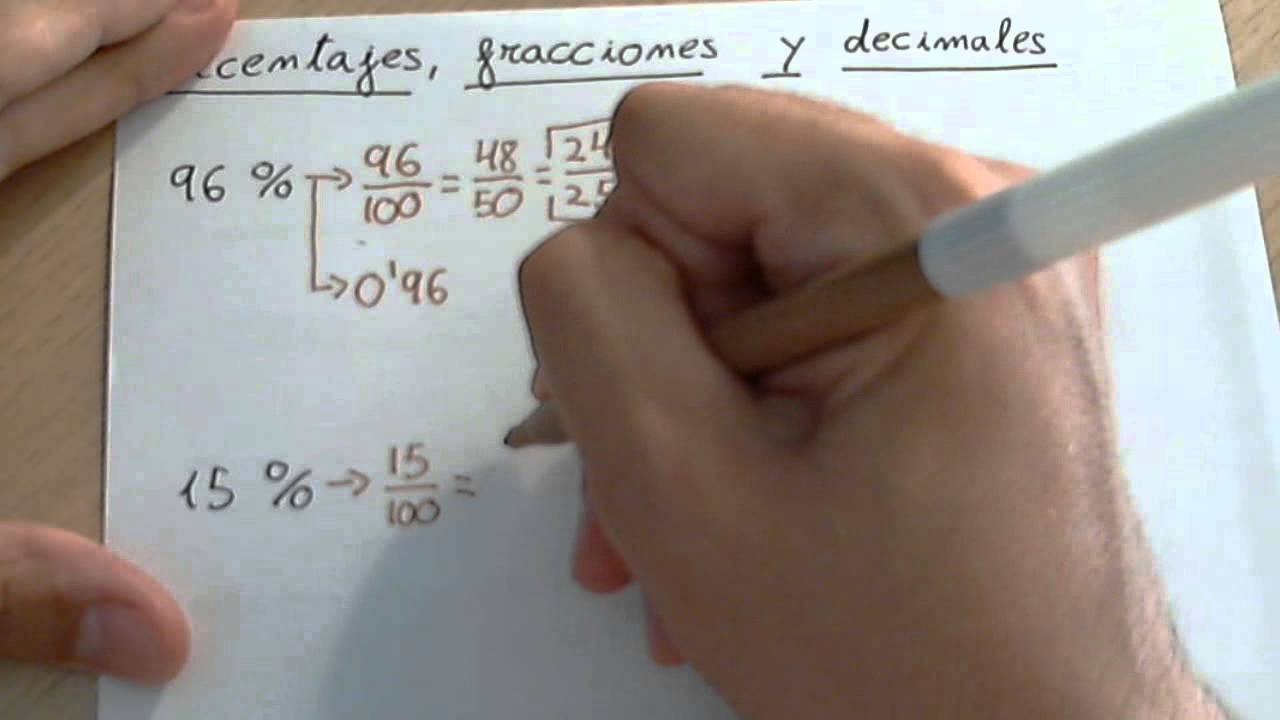 centajes, fracciones y decimales
96 % → 96/100 = 48/50 = 24/25
→ 0'96
15 % → 15/100 =